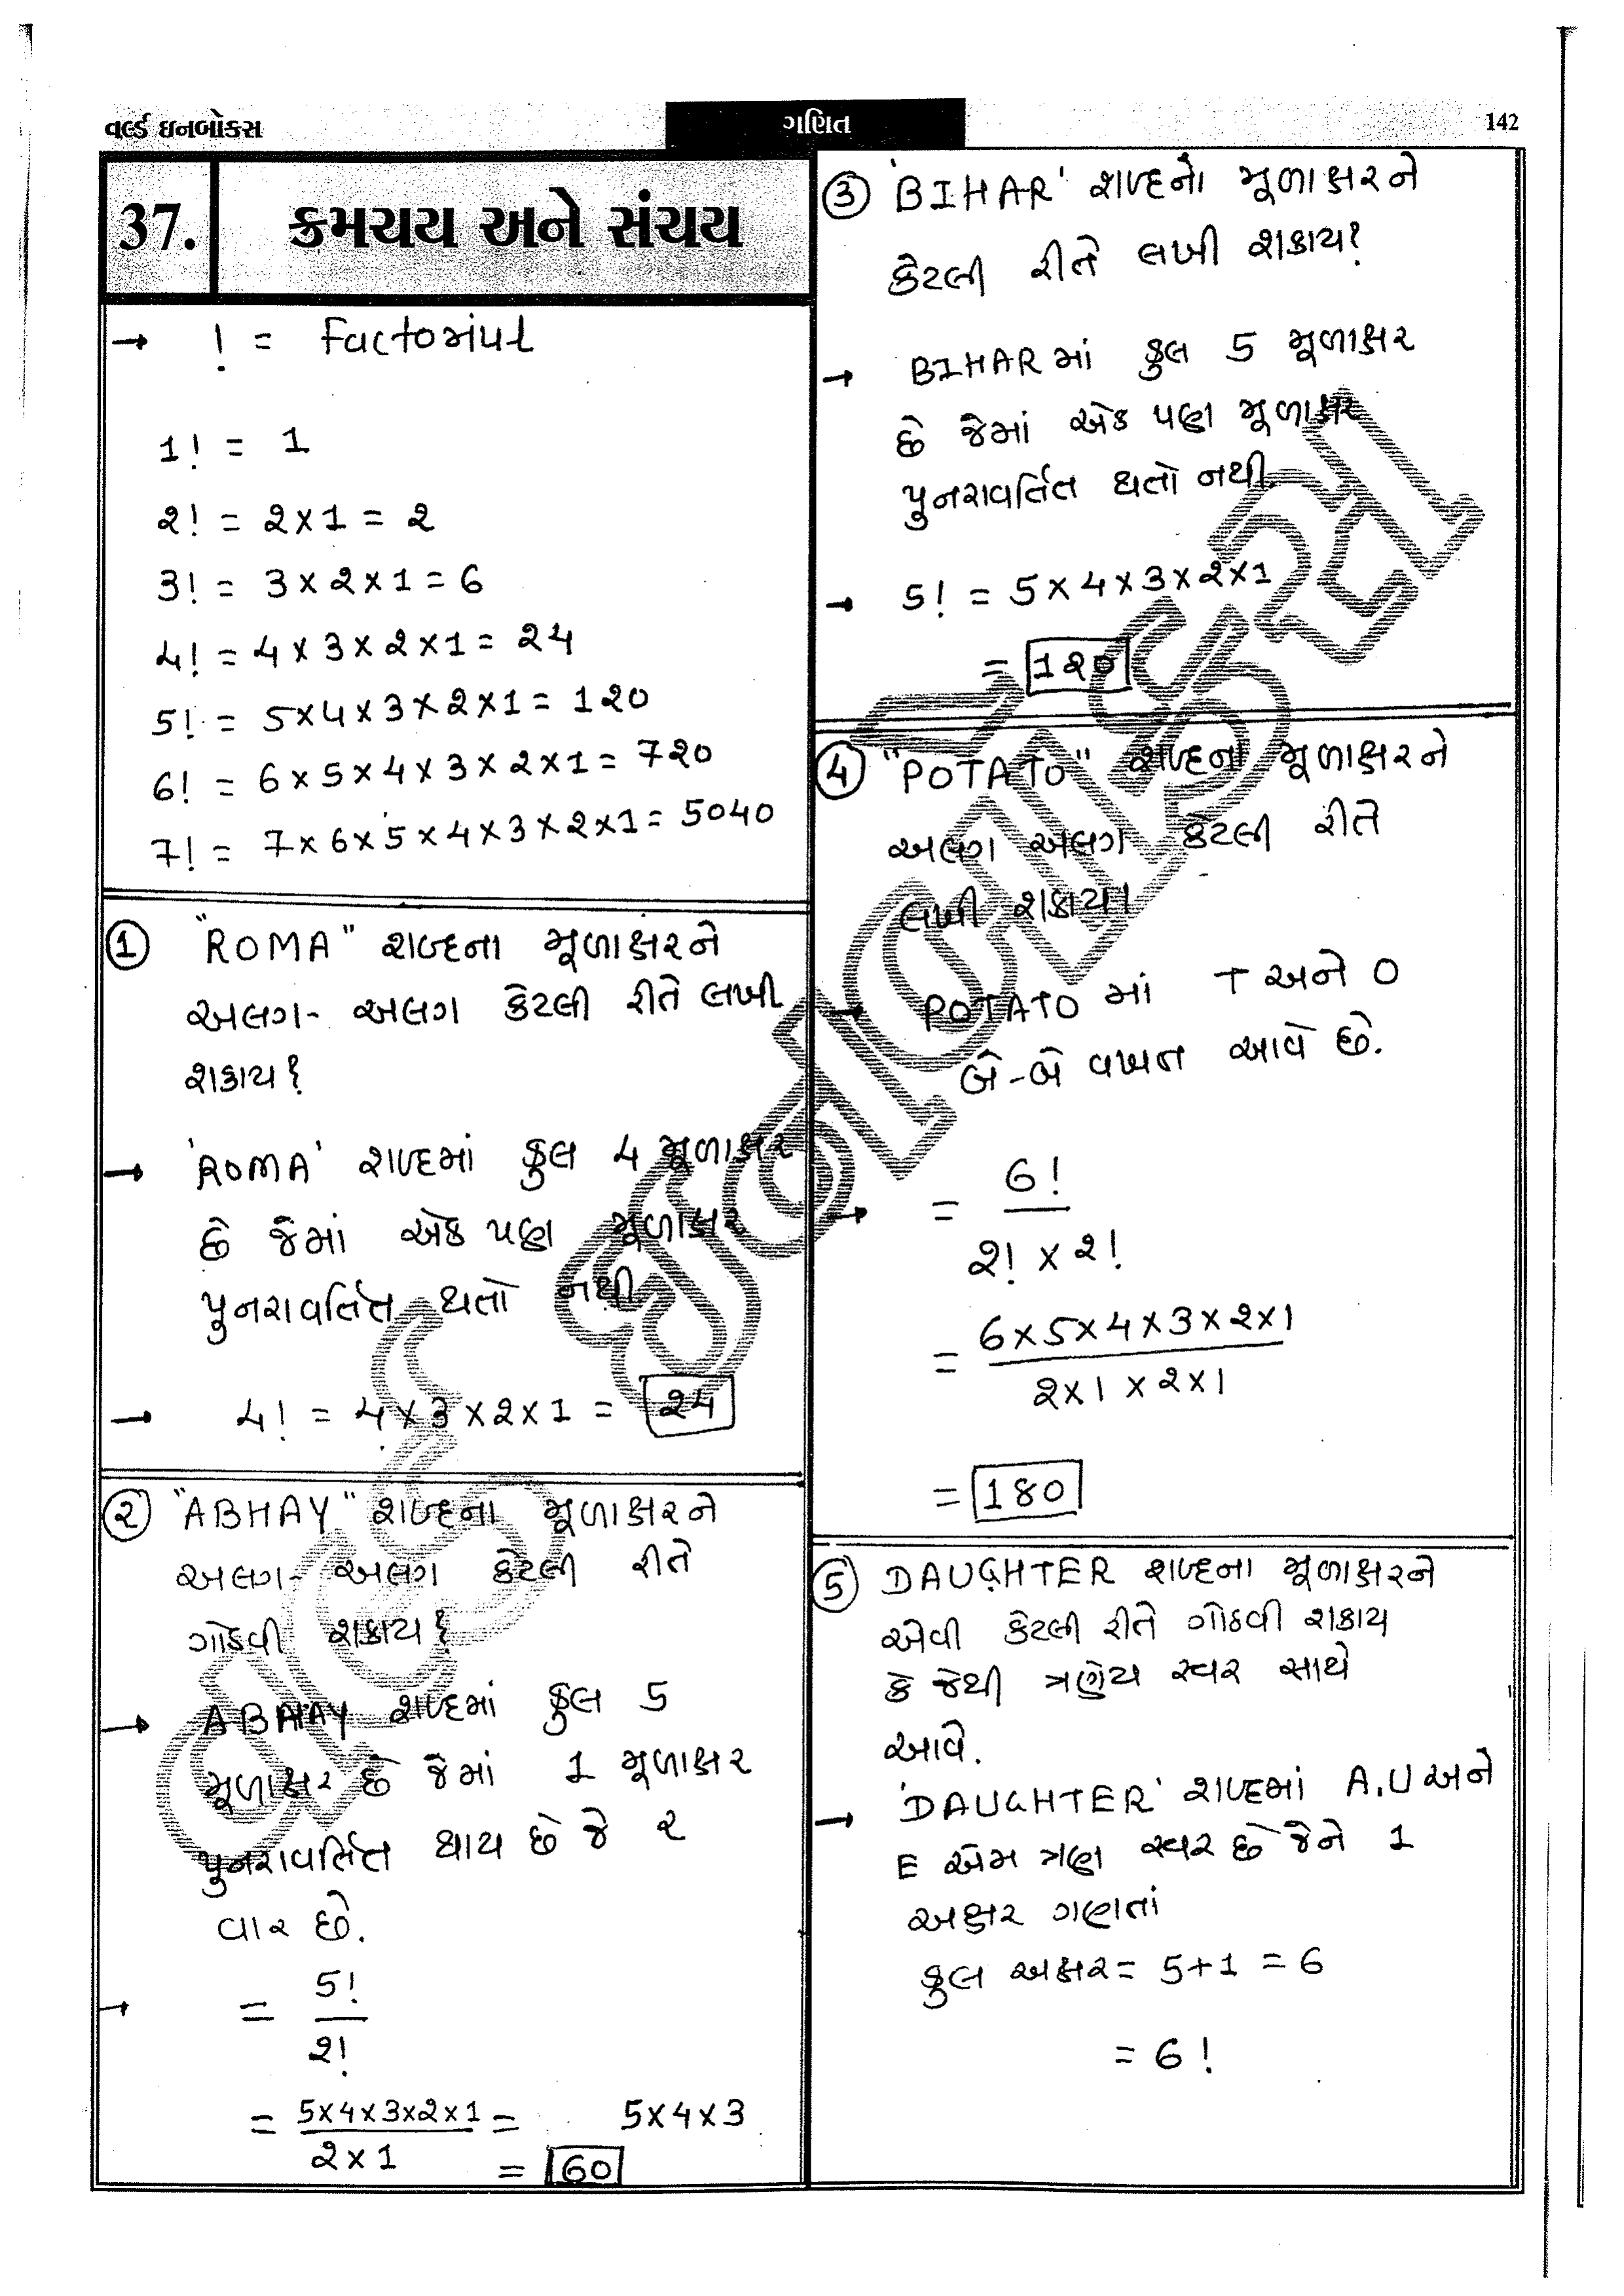 વર્લ્ડ ઇનબોક્સ
ગણિત
142
37.
ક્રમચય અને સંચય
→ ! = Factorial
1! = 1
2! = 2×1 = 2
3! = 3×2×1 = 6
4! = 4×3×2×1 = 24
5! = 5×4×3×2×1 = 120
6! = 6×5×4×3×2×1 = 720
7! = 7×6×5×4×3×2×1 = 5040
① "ROMA" શબ્દના મૂળાક્ષરને
અલગ- અલગ કેટલી રીતે લખી
શકાય?
→ 'ROMA' શબ્દમાં કુલ 4 મૂળાક્ષર
છે જેમાં એક પણ મૂળાક્ષર
પુનરાવર્તિત થતો નથી
→ 4! = 4×3×2×1 = 24
② "ABHAY" શબ્દના મૂળાક્ષરને
અલગ- અલગ કેટલી રીતે
ગોઠવી શકાય?
→ ABHAY શબ્દમાં કુલ 5
મૂળાક્ષર છે જેમાં 1 મૂળાક્ષર
પુનરાવર્તિત થાય છે જે 2
વાર છે.
→ = 5!
2!
= 5×4×3×2×1 = 5×4×3
2×1
= 60
③ 'BIHAR' શબ્દનો મૂળાક્ષરને
કેટલી રીતે લખી શકાય?
→ BIHAR માં કુલ 5 મૂળાક્ષર
છે જેમાં એક પણ મૂળાક્ષર
પુનરાવર્તિત થતો નથી.
→ 5! = 5×4×3×2×1
= 120
④ "POTATO" શબ્દના મૂળાક્ષરને
અલગ અલગ કેટલી રીતે
લખી શકાય।
→ POTATO માં T અને O
બે-બે વખત આવે છે.
→ = 6!
2! × 2!
= 6×5×4×3×2×1
2×1×2×1
= 180
⑤ DAUGHTER શબ્દના મૂળાક્ષરને
એવી કેટલી રીતે ગોઠવી શકાય
કે જેથી ત્રણેય સ્વર સાથે
આવે.
→ 'DAUGHTER' શબ્દમાં A.U અને
E એમ ત્રણ સ્વર છે જેને 1
અક્ષર ગણતાં
કુલ અક્ષર = 5+1 = 6
= 6!